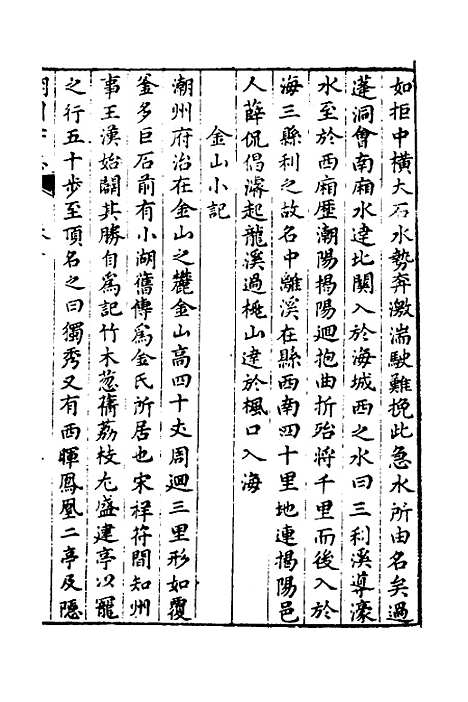 如拒中橫大石水勢奔激湍駛難挽此急水所由名矣過
蓬洞會南廂水達北關入於海城西之水曰三利溪導濠
水至於西廂歷潮陽揭陽迴抱曲折殆將千里而後入於
海三縣利之故名中離溪在縣西南四十里地連揭陽邑
人薛侃倡濬起龍溪過桃山達於楓口入海
金山小記
潮州府治在金山之麓金山高四十丈周迴三里形如覆
釜多巨石前有小湖舊傳為金氏所居也宋祥符間知州
事王漢始闢其勝自為記竹木蔥蒨荔枝尤盛建亭以冠
之行五十步至頂名之曰獨秀又有西暉鳳凰二亭及隱